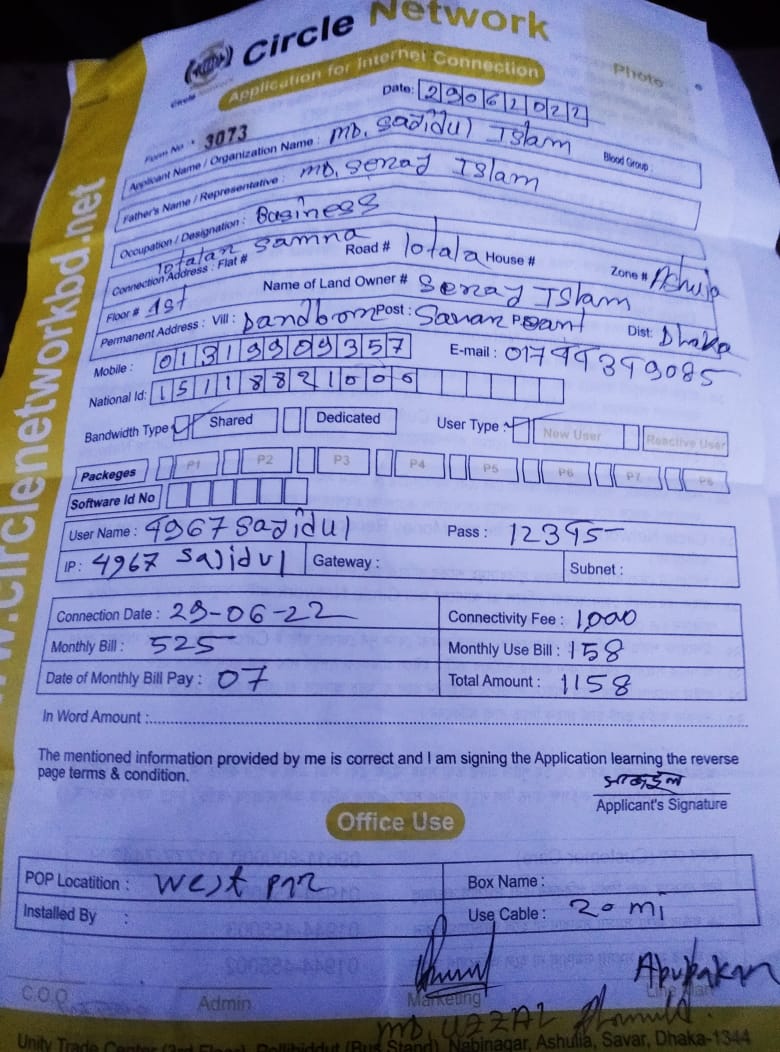 Circle Network
Application for Internet Connection
Photo
Date: 29062022
Form No : 3073
Applicant Name / Organization Name : MD. Sajidul Islam Blood Group :
Father's Name / Representative : MD, Seraj Islam
Occupation / Designation : Business
Connection Address : Flat # Road # 1otala House # Zone #
Floor # 1st Name of Land Owner # Seraj Islam
Permanent Address : Vill : Post : Savar Dist: Dhaka
Mobile : 01319909357 E-mail : 01794349085
National Id: 15118821006
Bandwidth Type Shared Dedicated User Type New User Reactive User
Packeges P1 P2 P3 P4 P5 P6 P7 P8
Software Id No
User Name : 4967 Sajidul Pass : 12345
IP : 4967 Sajidul Gateway : Subnet :
Connection Date : 29-06-22 Connectivity Fee : 1,000
Monthly Bill : 525 Monthly Use Bill : 158
Date of Monthly Bill Pay : 07 Total Amount : 1158
In Word Amount :
The mentioned information provided by me is correct and I am signing the Application learning the reverse
page terms & condition.
Applicant's Signature
Office Use
POP Locatition : West Box Name :
Installed By : Use Cable : 20 mi
Abubakar
C.O.O Admin Marketing Line Man
MD, UZZAL
Unity Trade Center (3rd Floor), Pollibiddut (Bus Stand), Nabinagar, Ashulia, Savar, Dhaka-1344
www.circlenetworkbd.net